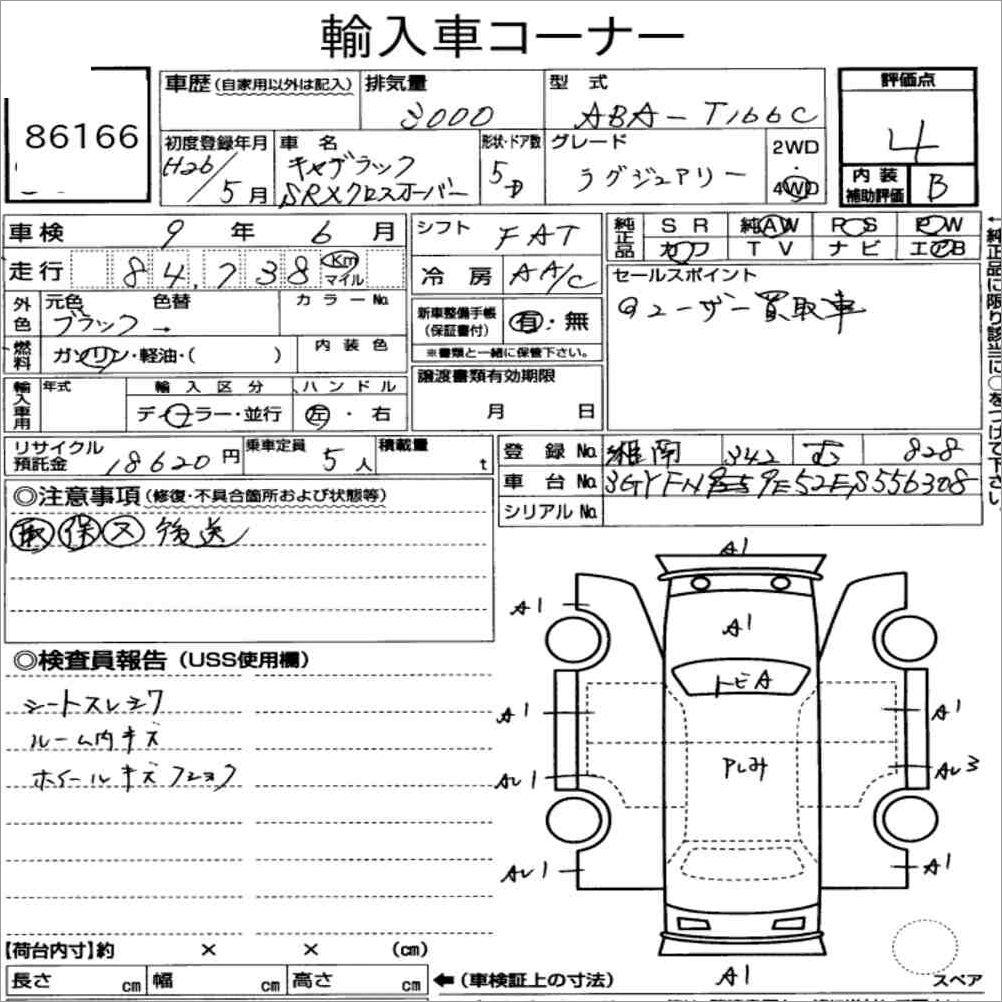 輸入車コーナー
86166
車歴(自家用以外は記入)
排気量
3000
型式
ABA-T166C
評価点
4
内装
補助評価
B
初度登録年月
H26/5月
車名
キャデラック
SRXクロスオーバー
形状・ドア数
5D
グレード
ラグジュアリー
2WD
・
4WD
車検 9年 6月
走行 84,738 Km
マイル
外色
元色
ブラック
色替
→
カラーNo.
燃料
ガソリン・軽油・( )
内装色
輸入車用
年式
輸入区分
ディーラー・並行
ハンドル
左・右
シフト FAT
冷房 AA/C
新車整備手帳
(保証書付)
有・無
※書類と一緒に保管下さい。
譲渡書類有効期限
月 日
純正品
SR
純AW
PS
PW
カワ
TV
ナビ
エアB
セールスポイント
ユーザー買取車
←純正品に限り該当に○をつけて下さい。
リサイクル
預託金
18620円
乗車定員 5人
積載量 t
登録No. 湘南 342 む 828
車台No.
シリアルNo.
◎注意事項(修復・不具合箇所および状態等)
取 保 又 後送
◎検査員報告(USS使用欄)
シートスレシワ
ルーム内キズ
ホイールキズフロヨゴレ
A1
A1
A1
トビA
A1
A1
PLみ
AU1
AU3
AU1
A1
A1
スペア
【荷台内寸】約 × × (cm)
長さ cm 幅 cm 高さ cm
←(車検証上の寸法)